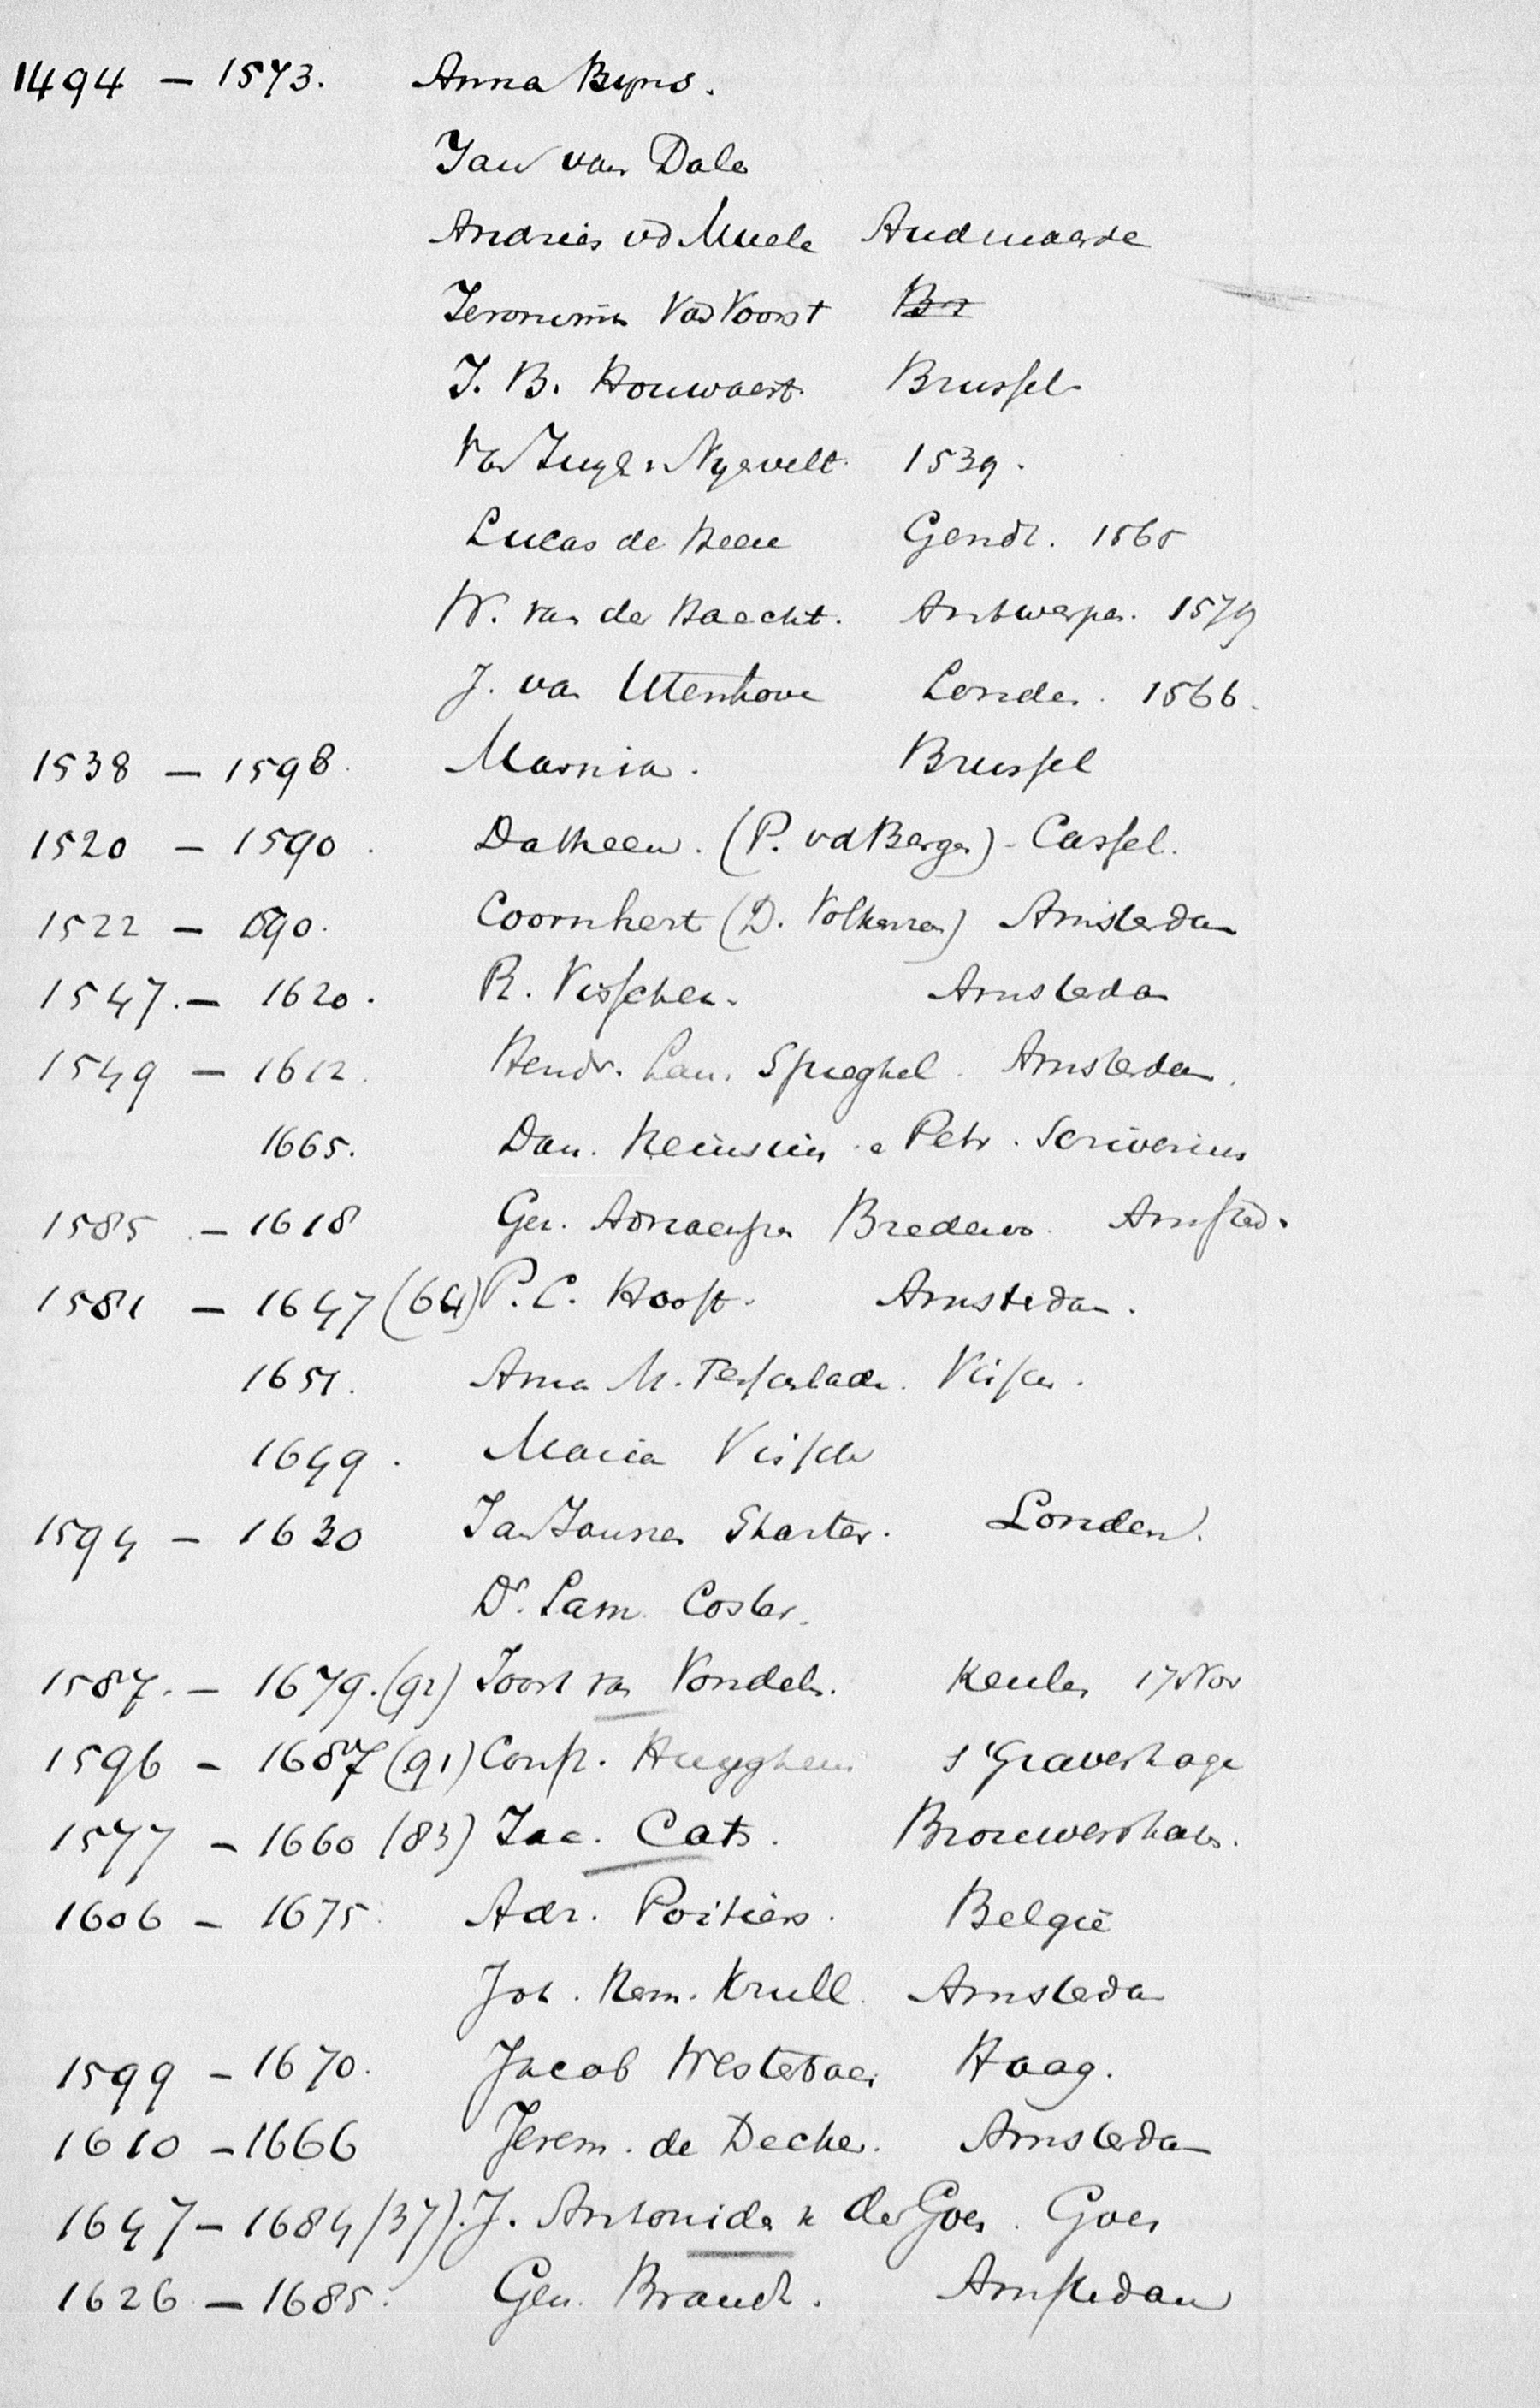 1494 – 1573. Anna Byns.
Jan van Dale
Andries vd Muele Audenaerde
Jeronimus Vad Voorst Br
J. B. Houwaert. Brussel
Van Zuyl. v Nyevelt. 1539.
Lucas de Heere Gendt. 1565
W. van der Haecht. Antwerpen. 1579
J. van Utenhove Londen. 1566.
1538 – 1598. Marnix. Brussel
1520 – 1590. Datheen. (P. vd Bergen) - Cassel.
1522 – 1590. Coornhert (D. Volkersen) Amsterdam
1547. – 1620. R. Visscher. Amsterdam
1549 – 1612. Hendr. Lau. Spieghel. Amsterdam.
1665. Dan. Heinsius e Petr. Scriverius
1585 – 1618 Ger. Adriaensen Bredero. Amsted.
1581 – 1647 (64) P. C. Hooft. Amsterdam.
1651. Anna M. Tesselschade. Visscher.
1649. Maria Visscher
1594 – 1630 Jan Jansen Starter. Londen.
Dr. Sam. Coster.
1587. – 1679. (92) Joost van Vondel. Keulen 17 Nov
1596 – 1687 (91) Const. Huyghens s'Gravenhage
1577 – 1660 (83) Jac. Cats. Brouwershaven.
1606 – 1675. Adr. Poitiers. België
Joh. Hem. Krull. Amsterdam
1599 – 1670. Jacob Westerbaen Haag.
1610 – 1666 Jerem. de Decker. Amsterdam
1647 – 1684 (37). J. Antonides v der Goes. Goes
1626 – 1685. Ger. Brandt. Amsterdam